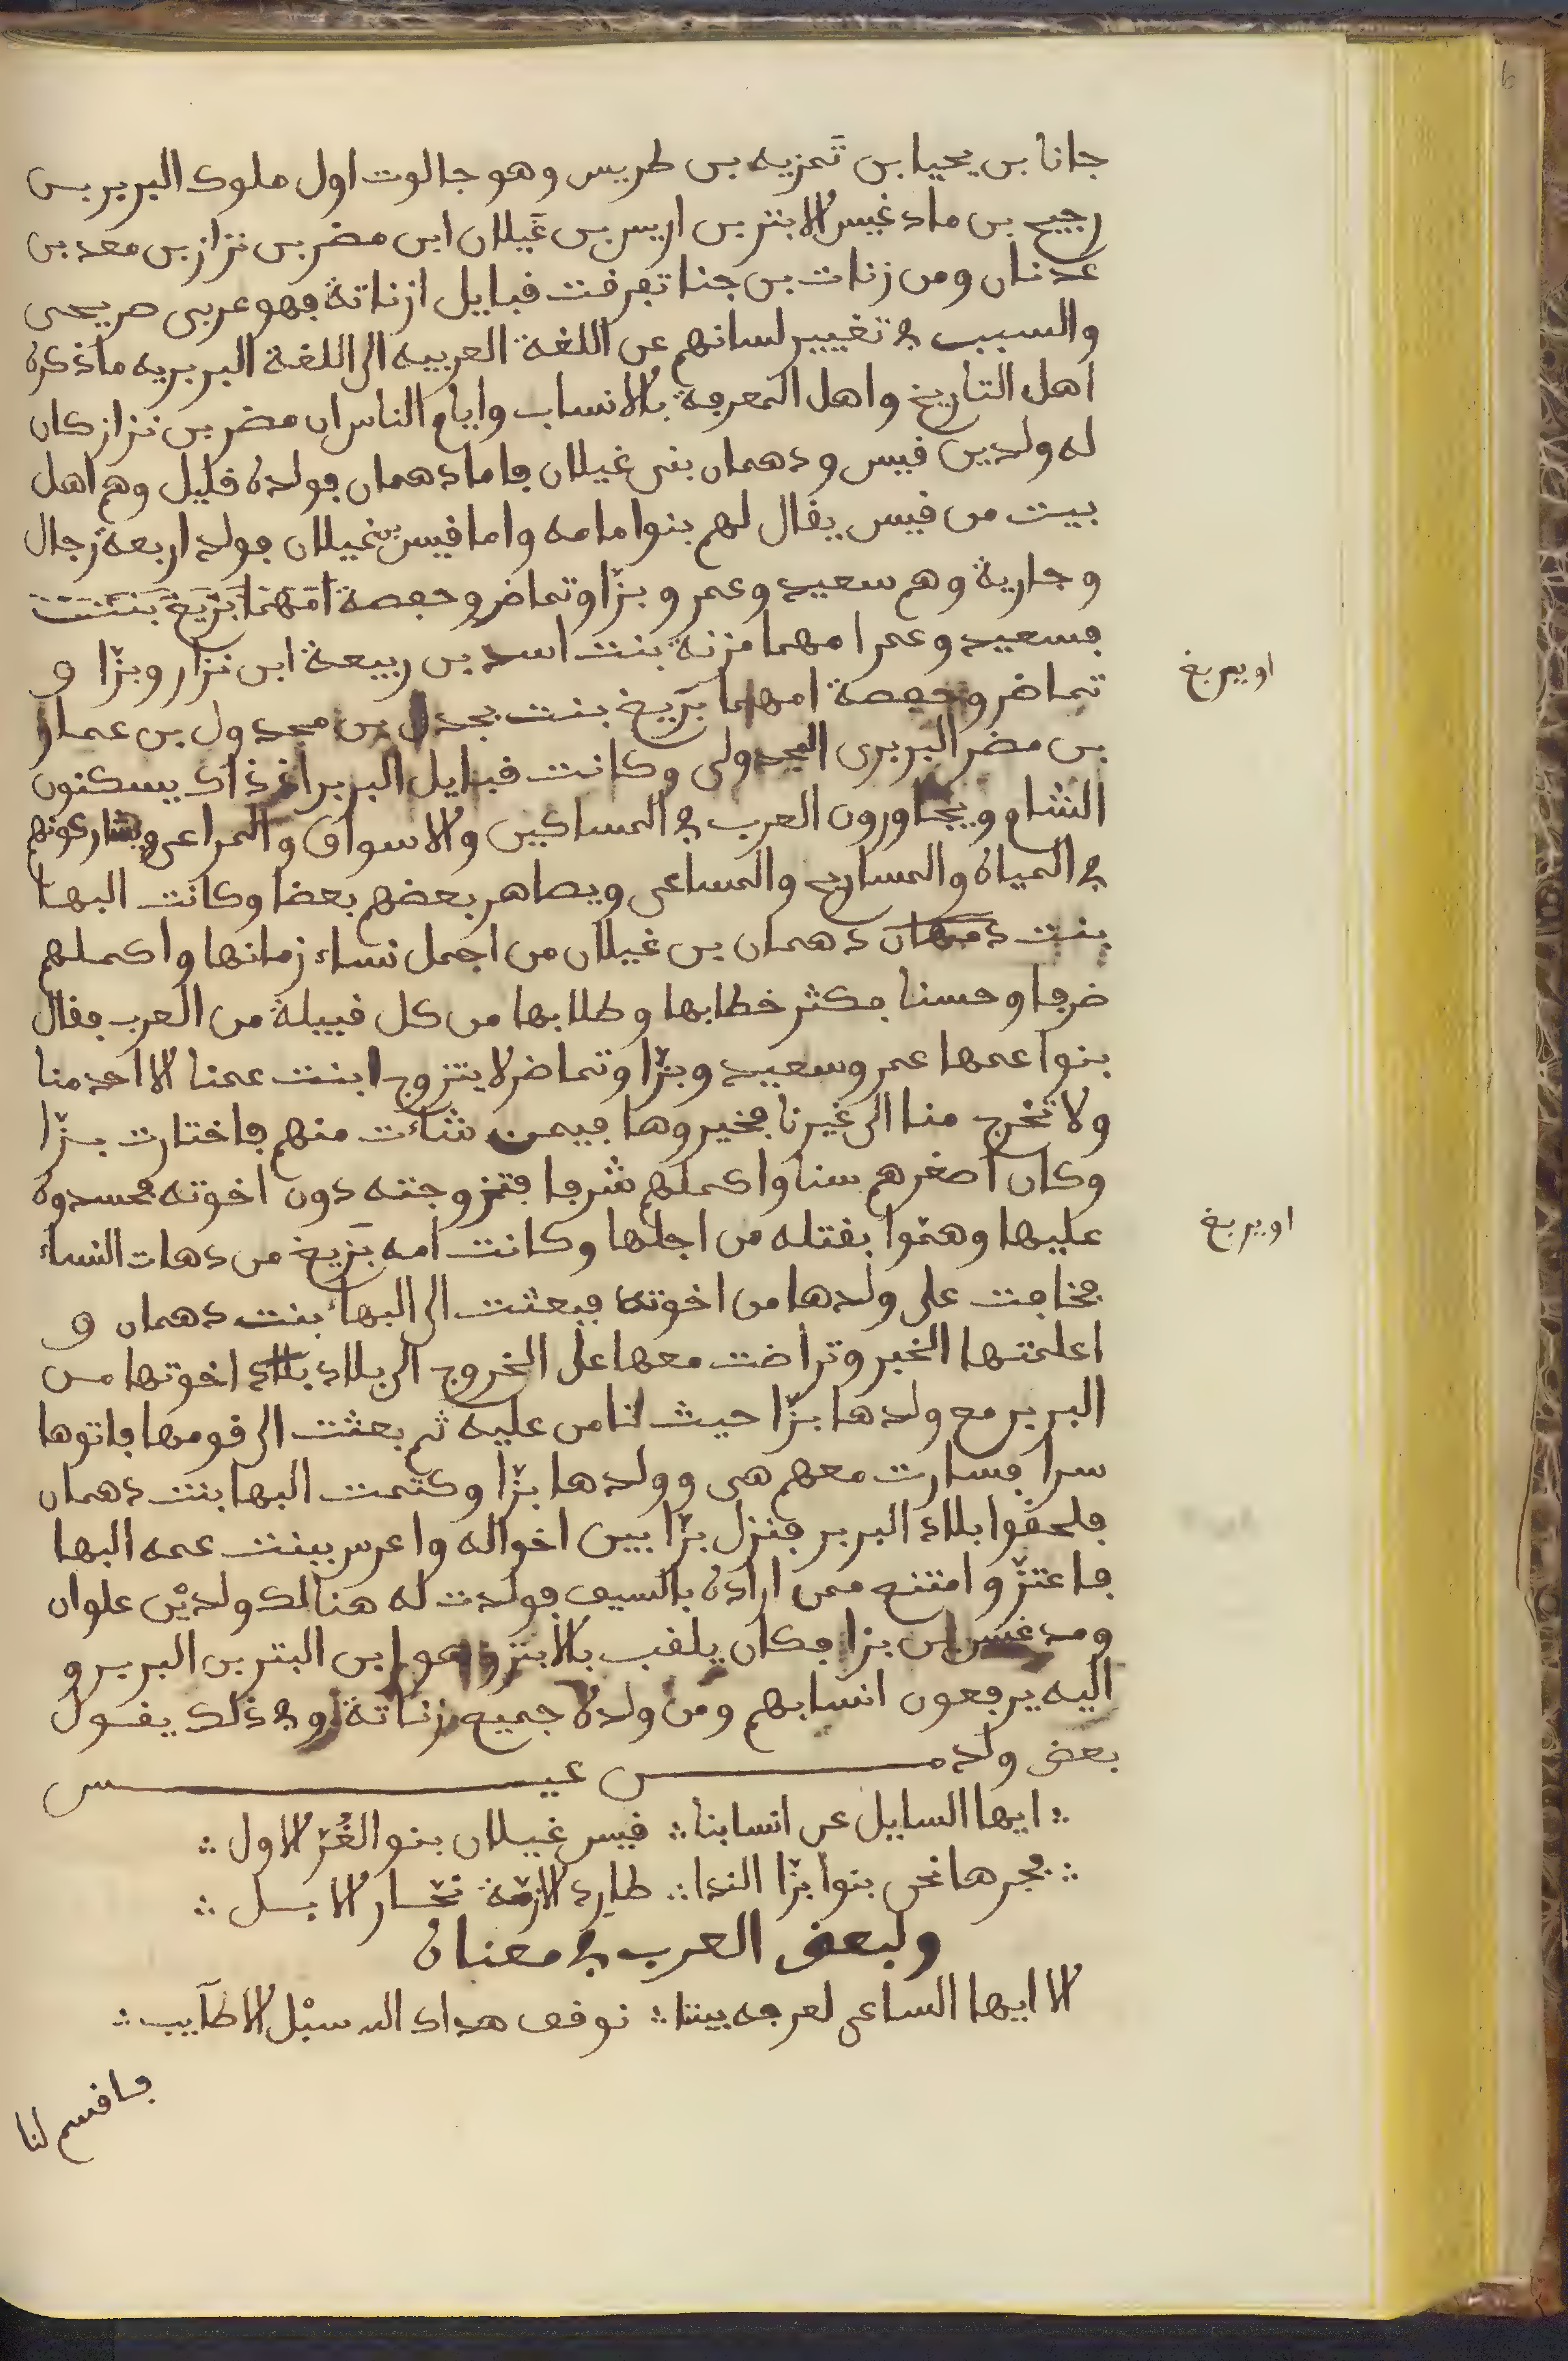 جانا بن يحيا بن تمزيه بن طريس وهو جالوت اول ملوك البربر بن
رجيح بن مادغيس الابتر بن اريس بن غيلان ابن مضر بن نزار بن معد بن
عدنان ومن زنات بن جنا تفرقت قبايل ازناتة فهو عربى صريحى
والسبب في تغيير لسانهم عن اللغة العربيه الى اللغة البربريه ماذكره
اهل التاريخ واهل المعرفة بالانساب وايام الناس ان مضر بن نزار كان
له ولدين قيس ودهمان بنى غيلان فاما دهمان فولده قليل وهم اهل
بيت من قيس يقال لهم بنوا مامه واما قيس بن غيلان فولد اربعة رجال
وجارية وهم سعيد وعمر وبزّا وتماضر وحفصة امهما بَزيغ بنت
فسعيد وعمرا مهما مزنة بنت اسد بن ربيعة ابن نزار وبزّا و
اوبيريغ
تماضر وحفصة امهما بزيغ بنت بجدل بن مجدول بن عمار
بن مضر البربرى المجدولى وكانت قبايل البربر اذ ذاك يسكنون
الشام ويجاورون العرب في المساكين والاسواق والمراعى ويشاركونهم
في المياه والمسارح والمساعى ويصاهر بعضهم بعضا وكانت البها
بنت دمهان دهمان بن غيلان من اجمل نساء زمانها واكملهم
ضرفا وحسنا فكثر خطابها وطلابها من كل قبيلة من العرب فقال
بنوا عمها عمر وسعيد وبزّا وتماضر لا يتزوج ابنت عمنا الا احد منا
ولا تخرج منا الى غيرنا فخيروها فيمن شاءت منهم فاختارت بزّا
وكان اصغرهم سنا واكملهم شرفا فتزوجته دون اخوته فحسدوه
عليها وهمّوا بقتله من اجلها وكانت امه بَزيغ من دهات النساء
اوبريغ
فخافت على ولدها من اخوته فبعثت الى البهاء بنت دهمان و
اعلمتها الخبر وتراضت معها على الخروج الى بلاد بلاد اخوتها من
البربر مع ولدها بزّا حيث تامن عليه ثم بعثت الى قومها فاتوها
سرا فسارت معهم هى وولدها بزّا وكتمت البها بنت دهمان
فلحقوا بلاد البربر فنزل بزّا بين اخواله واعرس ببنت عمه البها
فاعتزّ وامتنع ممن اراده بالسيف فولدت له هنالك ولديْن علوان
ومدغس ابن بزا فكان يلقب بالابتر وهو ابن البتر بن البربر و
اليه يرفعون انسابهم ومن ولده جميع زناتة وفي ذلك يقول
بعض ولد مس عيس
؞ ايها السايل عن انسابنا ؞ قيس غيلان بنو الغُرّ الاول ؞
؞ فجرها نحن بنوا بزّا الندا ؞ طارد الازمّة نحّار الابل ؞
ولبعض العرب في معناه
الا ايها الساعى لعرفه بيننا ؞ توقف هداك الله سبْل الاطآيب ؞
فاقسم لنا